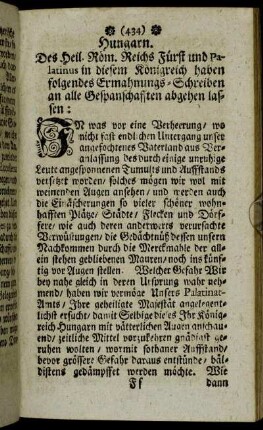 (434)
Hungarn.
Des Heil. Röm. Reichs Fürst und Pa-
latinus in diesem Königreich haben
folgendes Ermahnungs-Schreiben
an alle Gespanschafften abgehen las-
sen:
IN was vor eine Verheerung/ wo
nicht fast endlichen Untergang unser
angefochtenes Vaterland aus Ver-
anlassung des durch einige unruhige
Leute angesponnenen Tumults und Auffstands
versetzet worden/ solches mögen wir wol mit
weinenden Augen ansehen/ und werden auch
die Einäscherungen so vieler schöner wohn-
hafften Plätze/ Städte/ Flecken und Dörf-
fere/ wie auch deren anderwerts verursachte
Verwüstungen/ die Gedächtnüß dessen unsern
Nachkommen durch die Merckmahle der all-
ein stehen gebliebenen Mauren/ noch ins künf-
tig vor Augen stellen. Welcher Gefahr Wir
bey nahe gleich in deren Ursprung wahr neh-
mend/ haben wir vermöge Unsers Palatinat-
Amts/ Ihre geheiligte Majestät angelegent-
lichst ersucht/ damit Selbige dieses Ihr König-
reich Hungarn mit vätterlichen Augen anschau-
end/ zeitliche Mittel vorzukehren gnädigst ge-
ruhen wolten/ wormit sothaner Auffstand/
bevor grössere Gefahr daraus entstünde/ bäl-
distens gedämpffet werden möchte. Wie
Ff dann